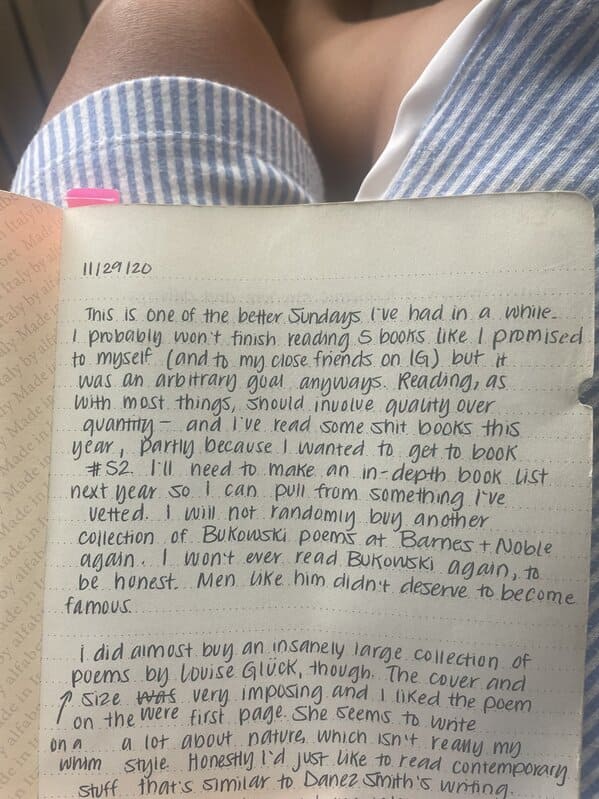 11/29/20
This is one of the better Sundays I've had in a while.
I probably won't finish reading 5 books like I promised
to myself (and to my close friends on IG) but it
was an arbitrary goal anyways. Reading, as
with most things, should involve quality over
quantity – and I've read some shit books this
year, partly because I wanted to get to book
#52. I'll need to make an in-depth book list
next year so I can pull from something I've
vetted. I will not randomly buy another
collection of Bukowski poems at Barnes + Noble
again. I won't ever read Bukowski again, to
be honest. Men like him didn't deserve to become
famous.
I did almost buy an insanely large collection of
poems by Louise Glück, though. The cover and
↑ size was very imposing and I liked the poem
on the were first page. She seems to write
on a a lot about nature, which isn't really my
whim style. Honestly I'd just like to read contemporary
stuff that's similar to Danez Smith's writing.
Made in
Italy by